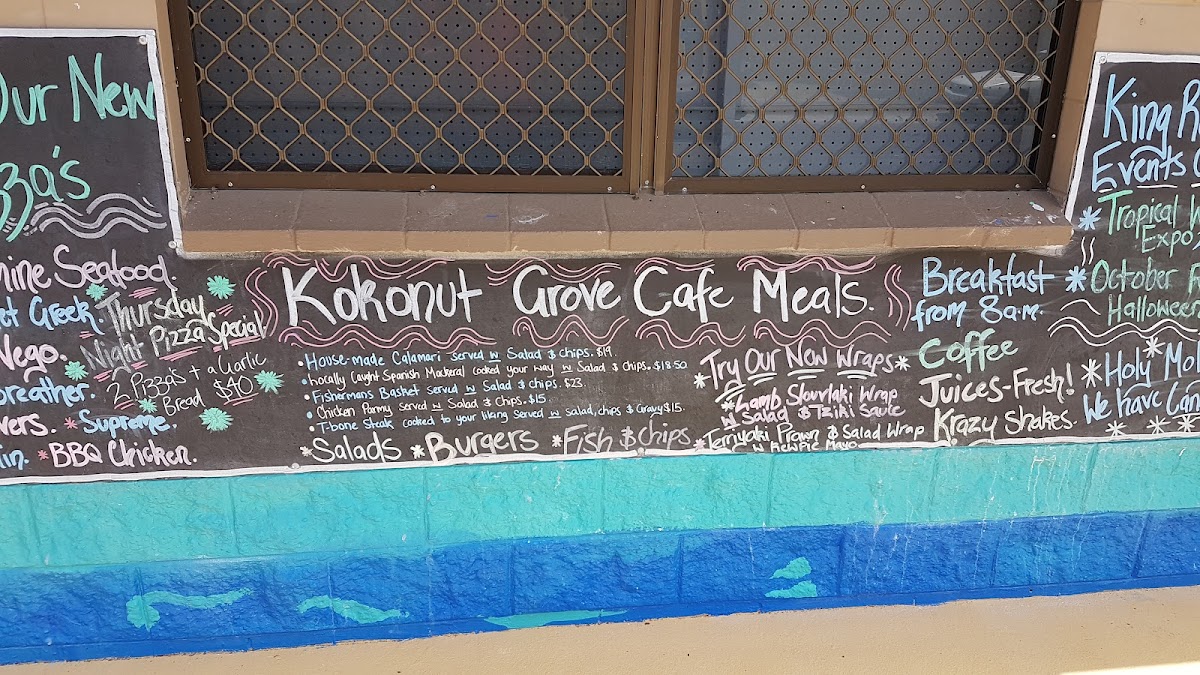 Our New
zza's
Seafood.
Greek.
Vego.
breather.
vers.
*Supreme.
*BBQ Chicken.
Thursday
Night Pizza Special.
2 Pizza's + a Garlic
Bread $40
Kokonut Grove Cafe Meals.
• House-made Calamari served w Salad & chips. $19
• Locally Caught Spanish Mackeral cooked your way w Salad & Chips. $18.50
• Fishermans Basket served w Salad & chips. $23.
• Chicken Parmy served w Salad & Chips. $15
• T-bone Steak cooked to your liking served w salad, chips & Gravy $15.
*Salads *Burgers *Fish & chips
*Try Our New Wraps*
*Lamb Slouvlaki Wrap
w Salad & Tziki Saute
*Terriyaki Prawn & Salad Wrap
w Mayo
Breakfast
from 8a.m.
Coffee
Juices-Fresh!
Krazy shakes.
King R
Events
*Tropical
Expo
*October
Halloween
*Holy Mol
We have Can